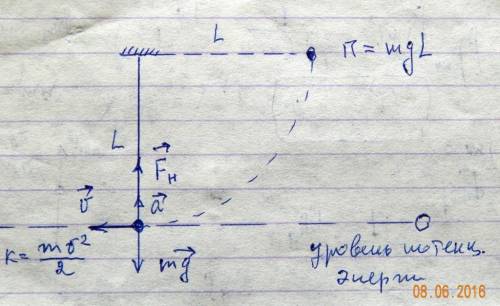 L
П = mgL
L
F⃗н
v⃗
a⃗
K = mv²/2
mg⃗
уровень потенц.
энерги
08.06.2016